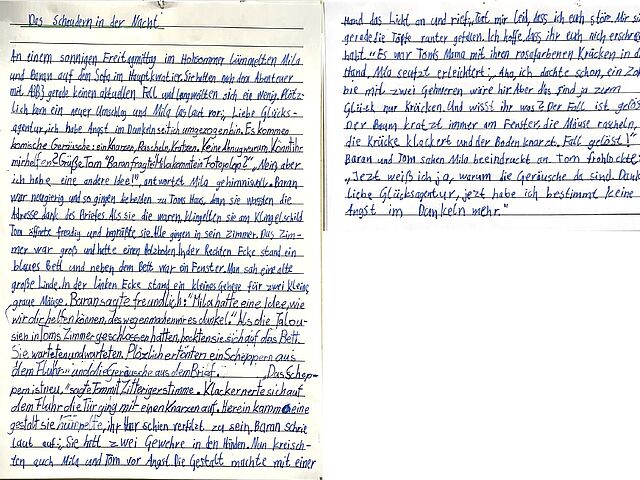 Das Scheudern in der Nacht
An einem sonnigen Freitagmittag im Holsommer lümgelten Mila
und Baran auf dem Sofa im Hauptkwatier. Sie hatten nach dem Abenteuer
mit gerade keinen aktuellen Fall und langwoilten sich ein wenig. Plötz-
lich kam ein neuer Umschlag und Mila las laut vor: „Liebe Glücks-
agentur, ich habe Angst im Dunkeln seit ich umgezogen bin. Es kommen
komische Geräusche: ein Knarzen, Rascheln, Kratzen. Keine Ahnung warum. Könnt ihr
mir helfen? Grüße Tom" Baran fragte:
ich habe eine andere Idee!", antwortet Mila gehimnisvoll. Baran
war neugierig und so gingen beide zu Toms Haus, denn sie wussten die
Adresse dank des Briefes. Als sie die waren, klingelten sie am Klingelschild
Tom öffnete freudig und begrüßte sie. Alle gingen in sein Zimmer. Das Zim-
mer war groß und hatte einen Holzboden. In der Rechten Ecke stand ein
blaues Bett und neben dem Bett war ein Fenster. Man sah eine alte
große Linde. In der linken Ecke stand ein kleines Gehege für zwei kleine
graue Mäuse. Baran sagte freundlich: "Mila hatte eine Idee, wie
wir dir helfen können, deswegen mahen wir es dunkel." Als die Jalou-
sien in Toms Zimmer geschlossen hatten, hockten sie sich auf das Bett.
Sie warteten und warteten. Plözlich ertönten ein Scheppern aus
dem Fluhr und die Geräusche aus dem Brief. „Das Schep-
pern ist neu," sagte Tom mit Zitteriger stimme. Klackernerte sich auf
dem Fluhr die Tür ging mit einen Knarzen auf. Herein kamm eine
gestalt sie hümpelte, ihr Har schien verfilzt zu sein. Baran schrie
laut auf: „Sie hält zwei Gewehre in den Händen. Nun kreisch-
ten auch Mila und Tom vor Angst. Die Gestalt machte mit einer
Hand das Licht an und rief: „Tut mir Leid, dass ich euch störe. Mir sind
gerade die Töpfe runter gefallen. Ich hoffe, dass ihr euch nicht erschreckt
habt." Es war Toms Mama mit ihren rosafarbenen Krücken in der
Hand. Mila seufzt erleichtert: „Aha, ich dachte schon, ein
bie mit zwei Gehweren wäre hir. Aber das sind ja zum
Glück nur Krücken. Und wisst ihr was? Der Fall ist gelöst
der Baum kratzt immer am Fenster, die Mäuse rascheln,
die Krücke klackert und der Boden knarzt. Fall gelöst!"
Baran und Tom sahen Mila beeindruckt an. Tom frohlockte:
„Jetzt weiß ich ja, warum die Geräusche da sind. Danke
liebe Glücksagentur, jetzt habe ich bestimmt keine
Angst im Dunkeln mehr."